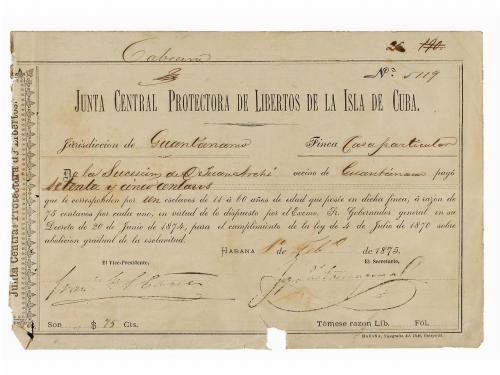 Cabrera
26 190
Nº 5119
JUNTA CENTRAL PROTECTORA DE LIBERTOS DE LA ISLA DE CUBA.
Jurisdiccion de Guantánamo Finca Casa particular
De la Sucesion de Dn Juan vecino de Guantánamo pagó
setenta y cinco centavos
que le corresponden por un esclavos de 11 á 60 años de edad que posée en dicha finca, á razon de
75 centavos por cada uno, en virtud de lo dispuesto por el Excmo. Sr. Gobernador general en su
Decreto de 20 de Junio de 1874, para el cumplimiento de la ley de 4 de Julio de 1870 sobre
abolicion gradual de la esclavitud.
HABANA 1º Feb de 1875.
El Vice-Presidente, El Secretario,
Son $ 75 Cts. Tómese razon Lib. Fól.
Junta Central Protectora de Libertos.